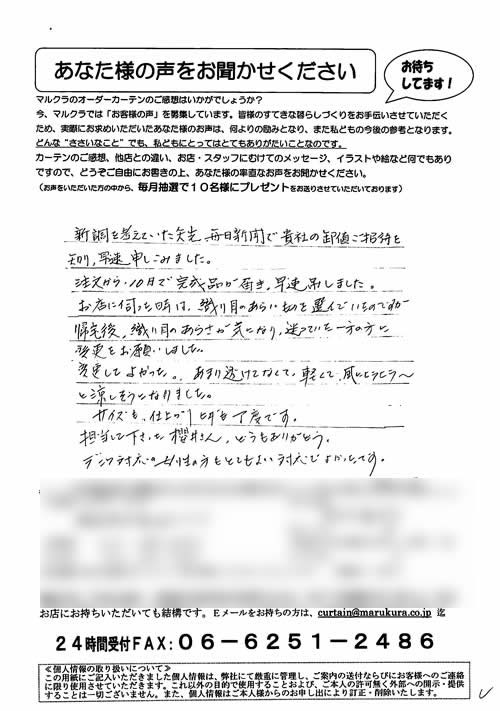 あなた様の声をお聞かせください
お待ち
してます!
マルクラのオーダーカーテンのご感想はいかがでしょうか?
今、マルクラでは「お客様の声」を募集しています。皆様のすてきな暮らしづくりをお手伝いさせていただく
ため、実際にお求めいただいたあなた様のお声は、何よりの励みとなり、また私どもの今後の参考となります。
どんな“ささいなこと”でも、私どもにとってはとてもありがたいことなのです。
カーテンのご感想、他店との違い、お店・スタッフにむけてのメッセージ、イラストや絵など何でもあり
ですので、どうぞご自由にお書きの上、あなた様の率直なお声をお聞かせください。
(お声をいただいた方の中から、毎月抽選で10名様にプレゼントをお送りさせていただいております)
新調を考えていた矢先、毎日新聞で貴社の卸値ご招待を
知り、早速申しこみました。
注文から10日で完成品が届き、早速吊しました。
お店に伺った時は、織り目のあらい物を選んでいたのですが
帰宅後、織り目のあらさが気になり、迷っていた一方の方に
変更をお願いしました。
変更してよかった。あまり透けてなくて、軽くて、風にそうそう〜
と涼しそうになりました。
サイズも、仕上り具合も丁度です。
担当して下さった櫻井さん、どうもありがとう。
の女性の方もとてもよい対応でよかったです。
お店にお持ちいただいても結構です。Eメールをお持ちの方は、curtain@marukura.co.jp 迄
24時間受付FAX:06-6251-2486
≪個人情報の取り扱いについて≫
この用紙にご記入いただきました個人情報は、弊社にて厳重に管理し、ご案内の送付ならびにお客様へのご連絡
に限り使用させていただきます。これ以外の目的で使用することおよび、ご本人の許可無く外部への開示・提供
することは一切ございません。また、個人情報はご本人様からのお申し出により訂正・削除いたします。